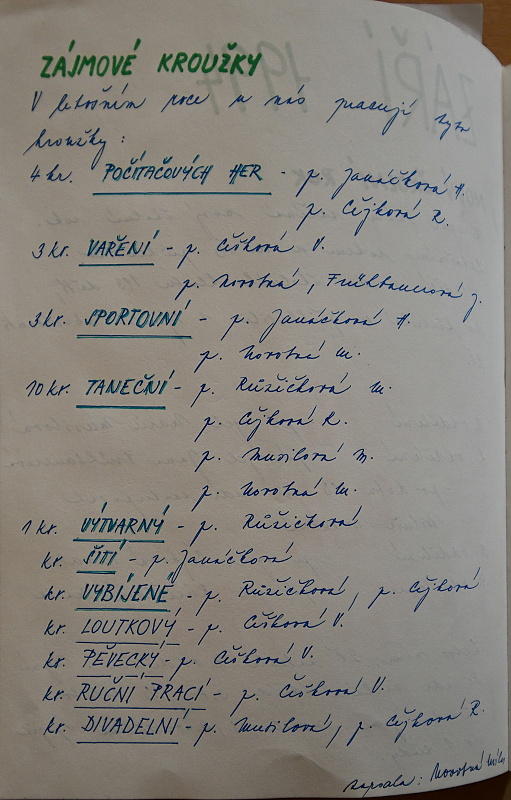 ZÁJMOVÉ KROUŽKY
V letošním roce u nás pracují tyto
kroužky :
4 kr. POČÍTAČOVÝCH HER - p. Janáčková H.
p. Cejková R.
3 kr. VAŘENÍ - p. Češková V.
p. Novotná, Frühbauerová J.
3 kr. SPORTOVNÍ - p. Janáčková H.
p. Novotná M.
10 kr. TANEČNÍ - p. Růžičková M.
p. Cejková R.
p. Musilová M.
p. Novotná M.
1 kr. VÝTVARNÝ - p. Růžičková
kr. ŠITÍ - p. Janáčková
kr. VYBÍJENÉ - p. Růžičková, p. Cejková
kr. LOUTKOVÝ - p. Češková V.
kr. PĚVECKÝ - p. Češková V.
kr. RUČNÍ PRACÍ - p. Češková V.
kr. DIVADELNÍ - p. Musilová, p. Cejková R.
zapsala : Novotná